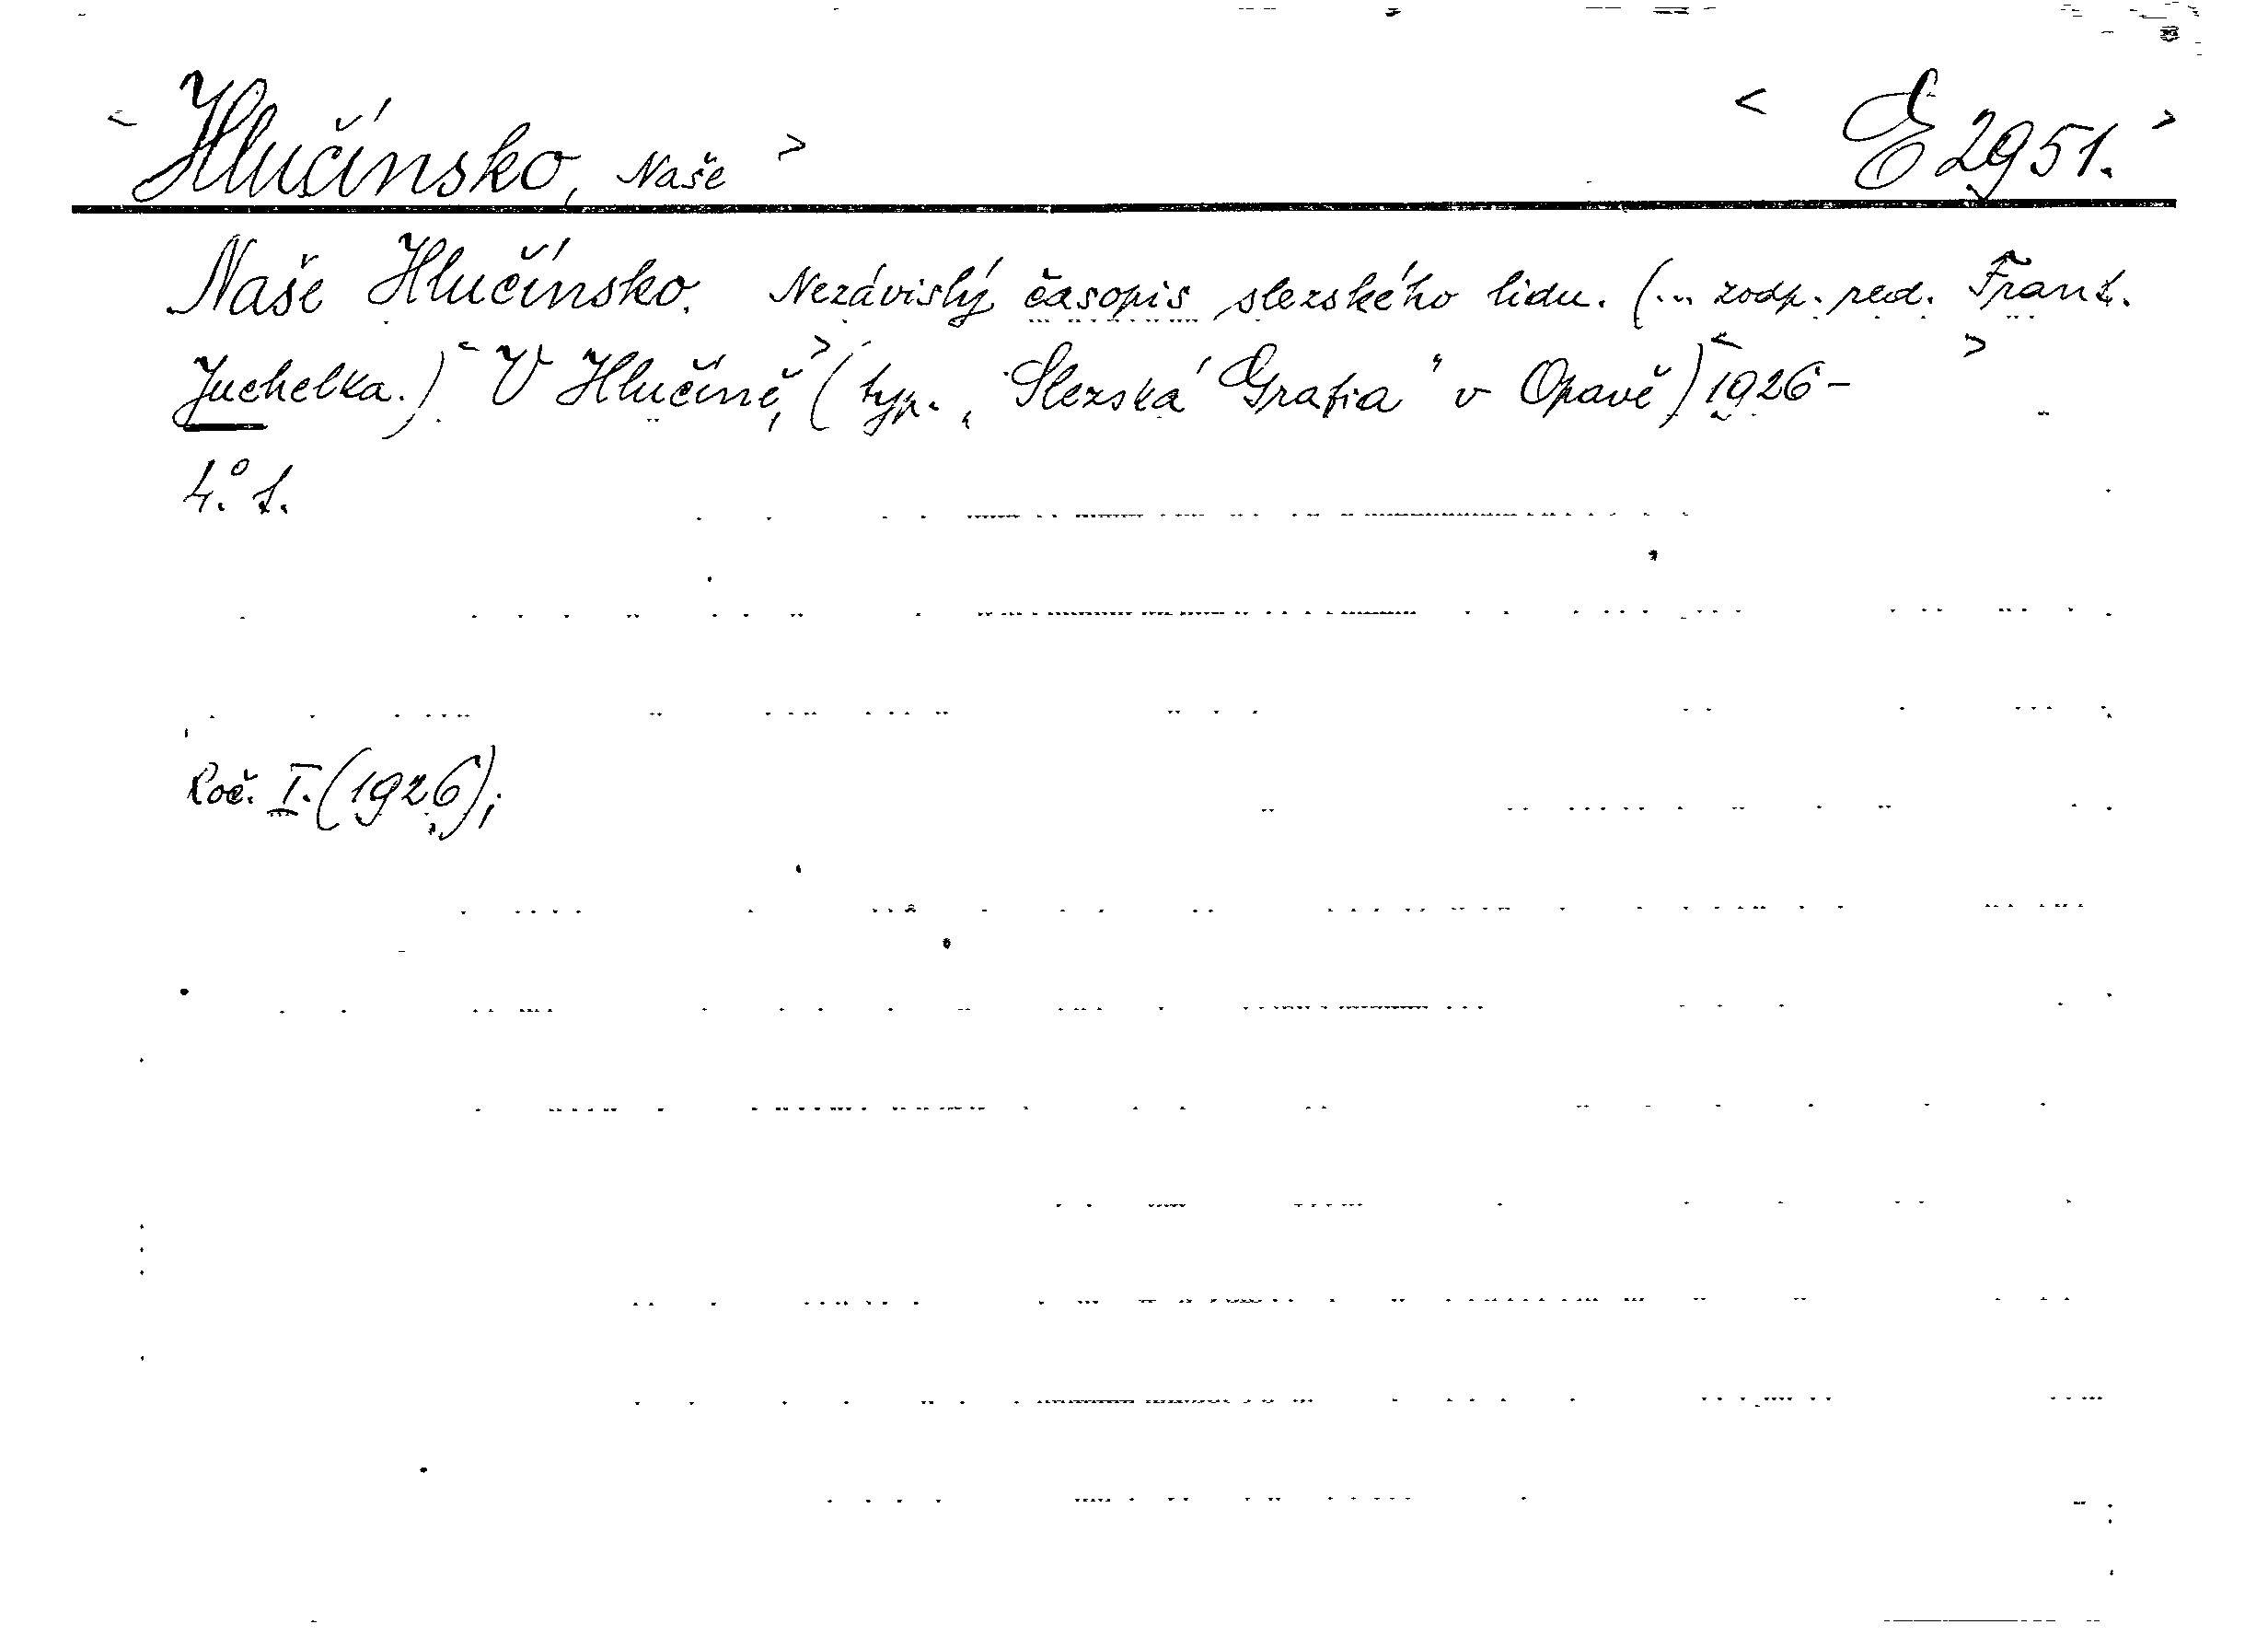 < Hlučínsko, Naše > < E 2951. >
Naše Hlučínsko. Nezávislý časopis slezského lidu. (... zodp. red. Frant.
Juchelka.) < V Hlučíně, > (typ. „Slezská Grafia" v Opavě) < 1926- >
4.° t.
Roč. I. (1926);